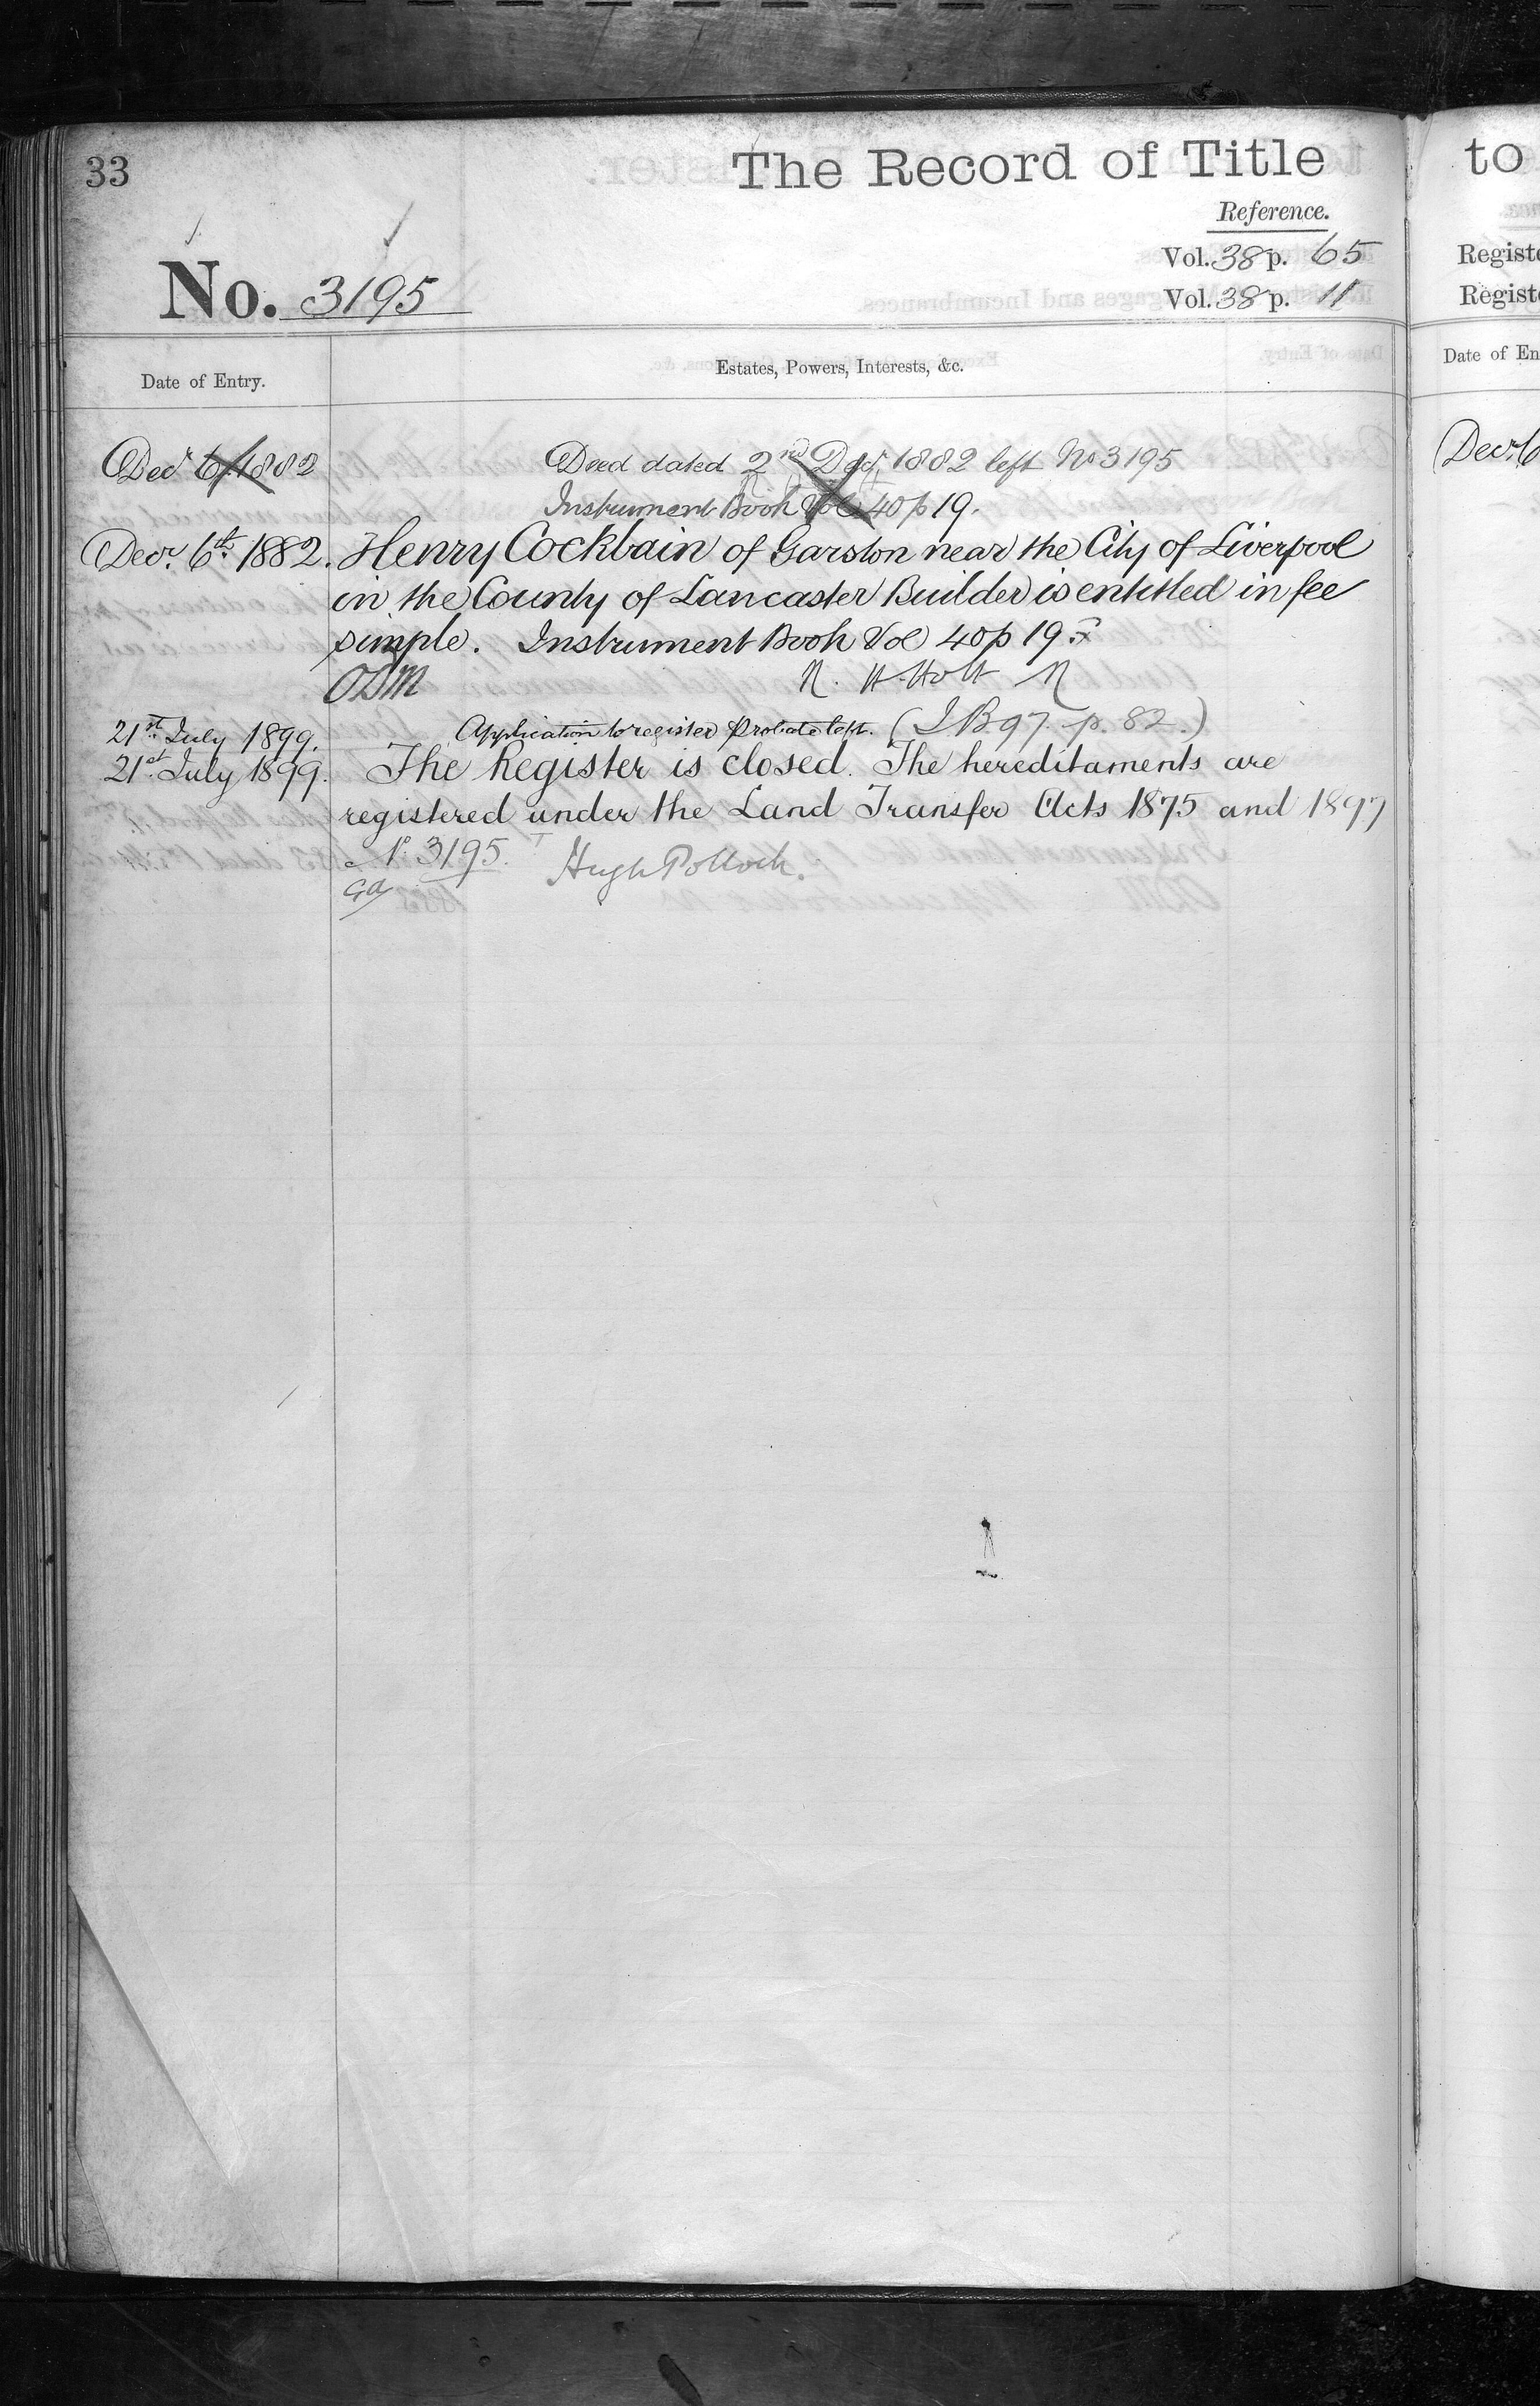 33
The Record of Title
to
Reference.
Vol. 38 p. 65
Vol. 38 p. 11
No. 3195
Date of Entry.
Estates, Powers, Interests, &c.
Date of En
Decr 6/1882
Deed dated 2nd Decr 1882 left No 3195
Instrument Book Vol 40 p 19.
Decr. 6th 1882. Henry Cockbain of Garston near the City of Liverpool
in the County of Lancaster Builder is entitled in fee
simple. Instrument Book Vol 40 p 19.
ODM
R. H. Holt R
21st July 1899.
Application to register Probate left. (I B 97. p. 82.)
21st July 1899. The Register is closed. The hereditaments are
registered under the Land Transfer Acts 1875 and 1897
No. 3195. Hugh Pollock.
Registe
Registe
Decr. 6